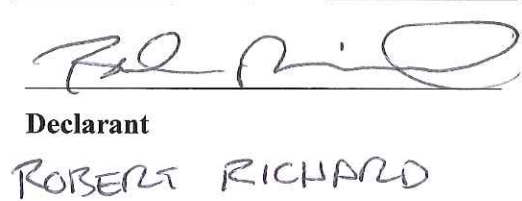 Declarant
ROBERT RICHARD